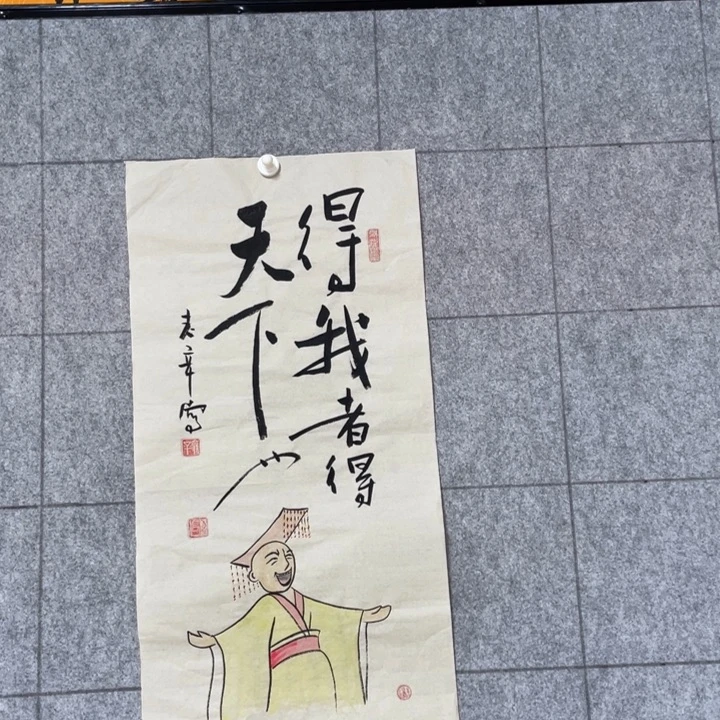 得我者得
天下也
袁辛写